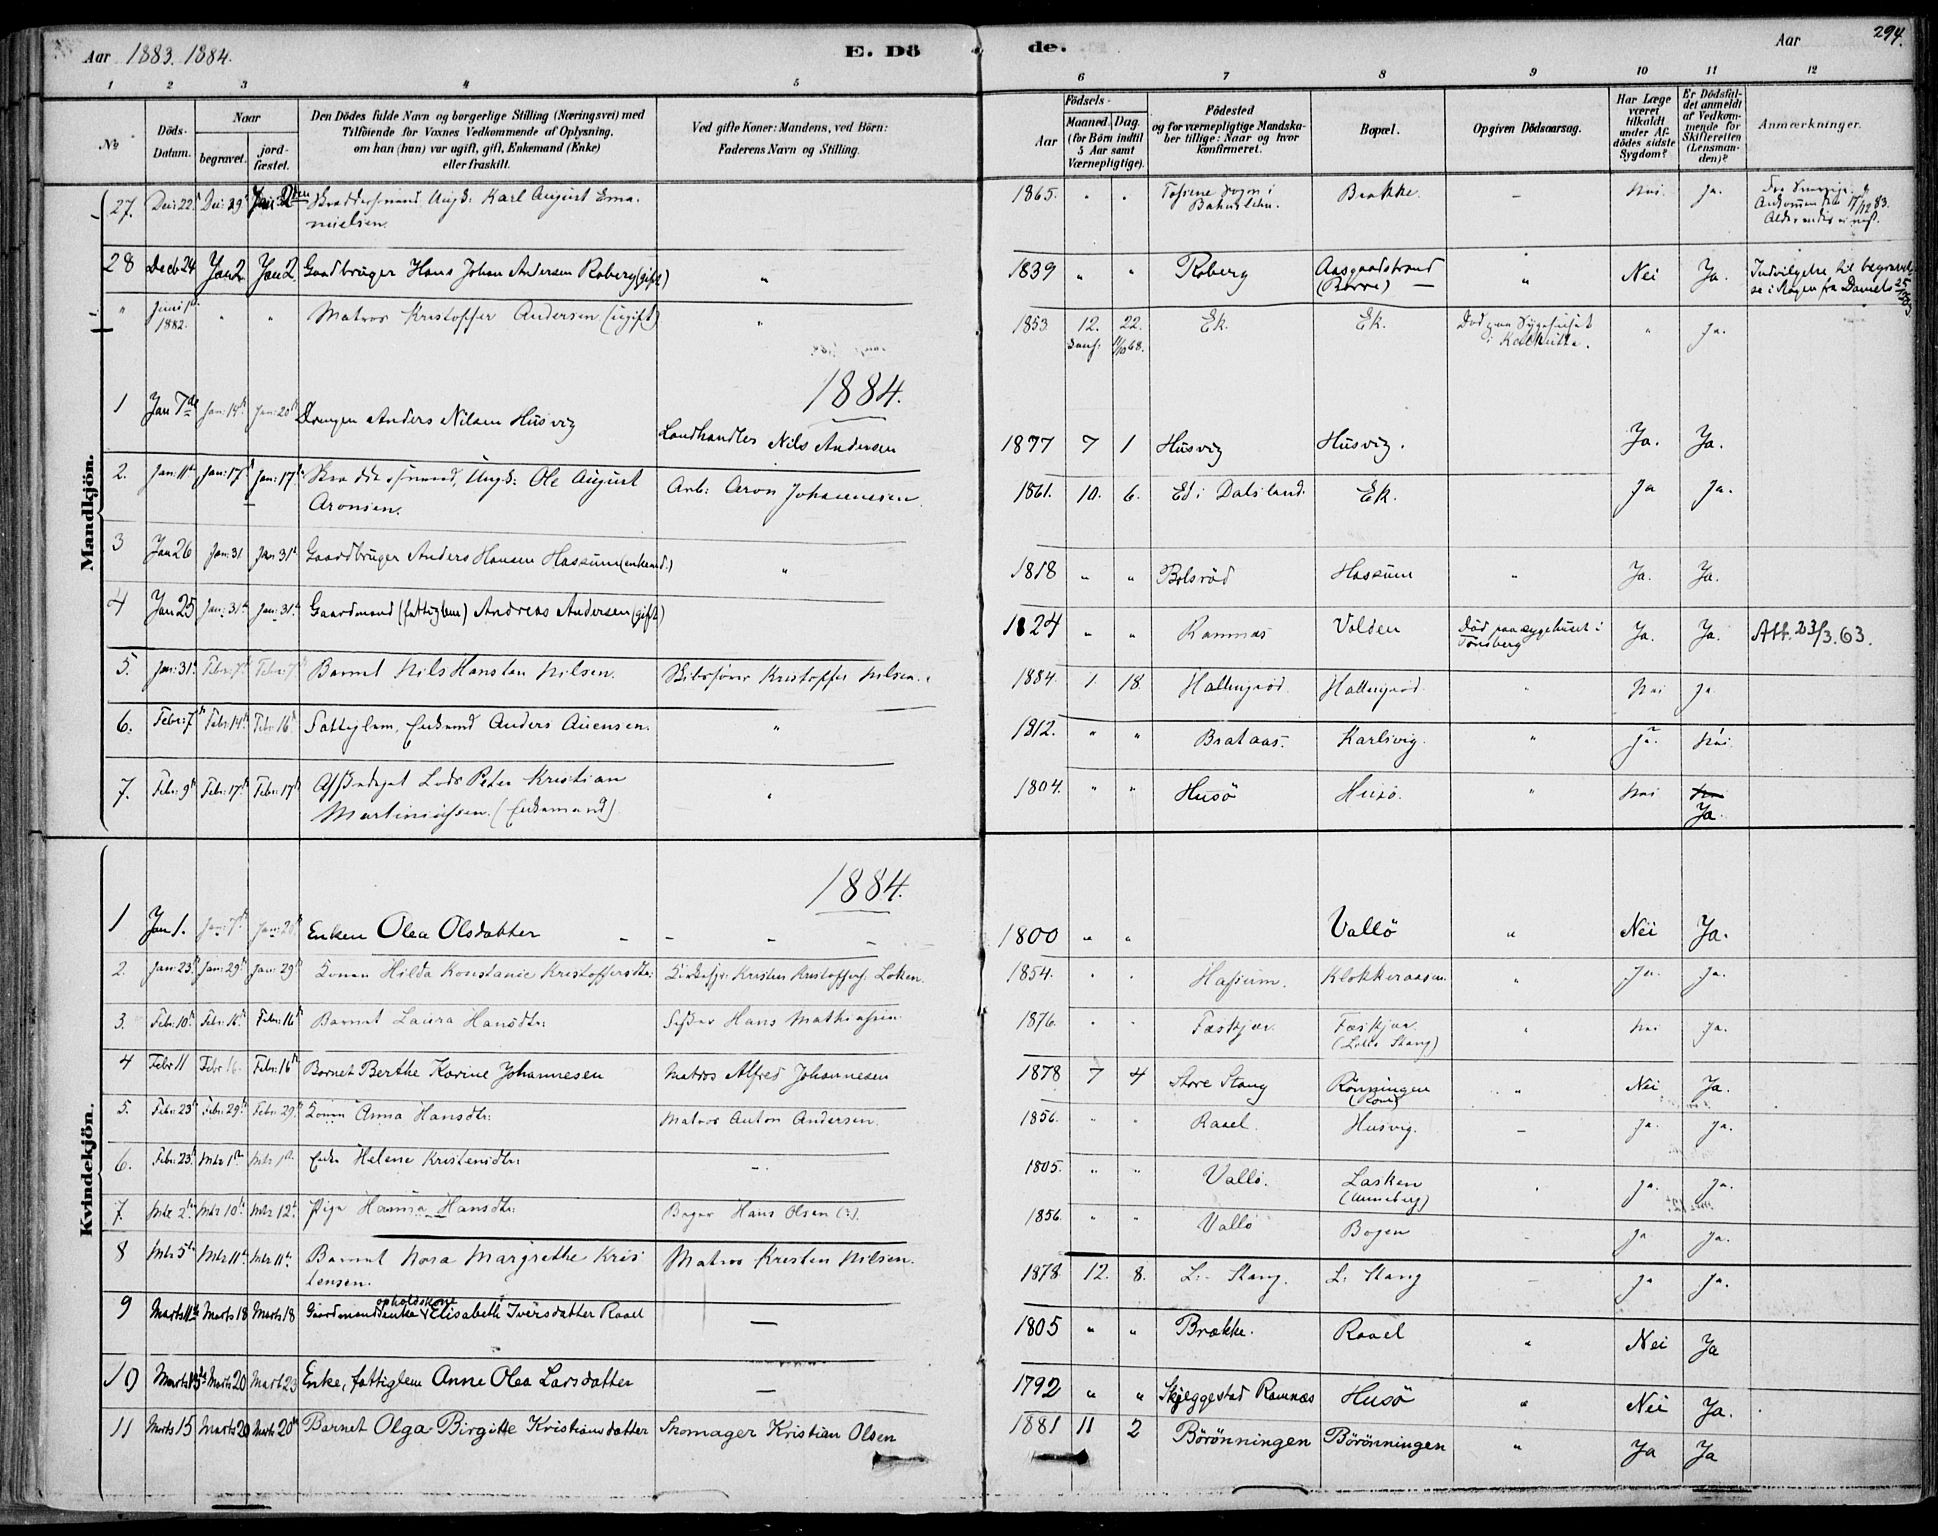 Aar 1883. 1884. E. Dö de. Aar 294.
1 2 3 4 5 6 7 8 9 10 11 12
No Döds-Datum. Naar begravet. jordfæstet. Den Dödes fulde Navn og borgerlige Stilling (Næringsvei) med Tilföiende for Voxnes Vedkommende af Oplysning, om han (hun) var ugift, gift, Enkemand (Enke) eller fraskilt. Ved gifte Koner: Mandens, ved Börn: Faderens Navn og Stilling. Födsels- Aar Maaned. Dag. (for Börn indtil 5 Aar samt Værnepligtige). Födested og for værnepligtige Mandskaber tillige: Naar og hvor konfirmeret. Bopæl. Opgiven Dödsaarsag. Har Læge været tilkaldt under Afdödes sidste Sygdom? Er Dödsfaldet anmeldt af Vedkommende for Skifteretten (Lensmanden)? Anmærkninger.
Mandkjön.
27. Dec: 22 Dec: 29 Jan: 2den Ungk: Karl August Emanuelsen. 1865. " " Tossene Sogn i Bahuslehn. Bakke. – Nei Ja. 17/12 83.
28 Decb 24 Jan 2 Jan 2 Gaadbruger Hans Johan Andersen Roberg (gift) " 1839 " " Roberg Aasgaardstrand (Borre) – " Nei Ja. Indvilgelse til begravelse i Slagen fra Daniels
" Juni 1st 1882. " " Matros Kristoffer Andersen. (ugift) " 1853. 12. 22. Ek. Ek. Död paa Sygehuset i Kalkutta. " Ja.
1884.
1 Jan 7de Jan: 14 Jan: 20 Drengen Anders Nilsen Husvig Landhandler Nils Andersen 1877 7 1 Husvig Husvig. Ja. Ja.
2. Jan: 11 Jan: 17 Jan: 17 Ungk: Ole August Aronsen. Arb: Aron Johannesen. 1861. 10. 6. Ed i Dalsland. Ek. Ja Ja.
3 Jan 26 Jan: 31 Jan 31 Gaardbruger Anders Hansen Hassum (enkemd.) " 1818 " " Bolsröd Hassum " Ja. Ja.
4 Jan 25 Jan: 31 Jan: 31. Gaardmand (fattiglem) Andreas Andersen (gift) 1824 " " Ramnæs Volden Död paa sygehuset i Tönsberg Ja. Ja. Att. 23/3. 63.
5. Jan: 31. Febr: 7 Febr: 7 Barnet Nils Hanstan Nilsen. Skibsförer Kristoffer Nilsen. 1884. 1. 18. Hallingröd. Hallingröd. " Nei Ja
6. Febr: 7 Febr: 14 Febr: 16. Fattiglem, Enkemd Anders Auensen. " 1812. " " Brataas. Karlsvig. " Ja. Nei.
7. Febr: 9 Febr: 17 Febr: 17 Afskediget Lods Peter Kristian Martiniussen. (Enkemand). " 1804. " " Husö Husö. " Nei Ja.
Kvindekjön.
1884.
1 Jan 1. Jan: 7 Jan: 20 Enken Olea Olsdatter – – 1800 " " Vallö " Nei Ja.
2. Jan: 23. Jan: 29 Jan: 29 Konen Hilda Konstanie Kristoffersdtr: Kristen Kristoffers. Loken. 1854. " " Hassum. Klokkeraasen. " Ja. Ja.
3. Febr: 10 Febr: 16 Febr: 16 Barnet Laura Hansdtr: Hans Mathiassen. 1876. " " Fæskjær. Fæskjær. (Lille Stang) " Nei Ja.
4 Febr 11 Febr 16. Febr: 16 Barnet Berthe Karine Johannesen Matros Alfred Johannesen 1878 7 4 Store Stang Rönningen " Nei Ja.
5. Febr: 23 Febr: 29 Febr: 29 Konen Anna Hansdtr: Matros Anton Andersen. 1856. " " Raael. Husvig. – Ja. Ja.
6. Febr: 23 Mts 1 Mts 1 Enke Helene Kristensdtr: – 1805. " " Vallö. Lasken (Anneberg) Ja. Ja.
7. Mts 2. Mts 10 Mts 12. Pige Hanna Hansdtr: Hans Olsen 1856. " " Vallö Bogen – Ja Ja.
8 Mts 5 Mts 11 Mts 11 Barnet Nora Margrethe Kristensen. Matros Kristen Nilsen. 1878. 12. 8. L: Stang. L: Stang – Ja Ja.
9 Marts 11 Marts 18 Marts 18 Gaardmandsenke opholdskone Elisabeth Iversdatter Raael – 1805 " " Brække. Raael " Nei Ja
10 Marts 15 Marts 20 Marts 23 Enke, fattiglem Anne Olea Larsdatter – 1792 " " Skjeggestad Ramnæs Husö " Nei Ja.
11 Marts 15 Marts 20 Marts 20 Barnet Olga Birgitte Kristiansdatter Skomager Kristian Olsen 1881 11 2 Börönningen Börönningen " Ja Ja